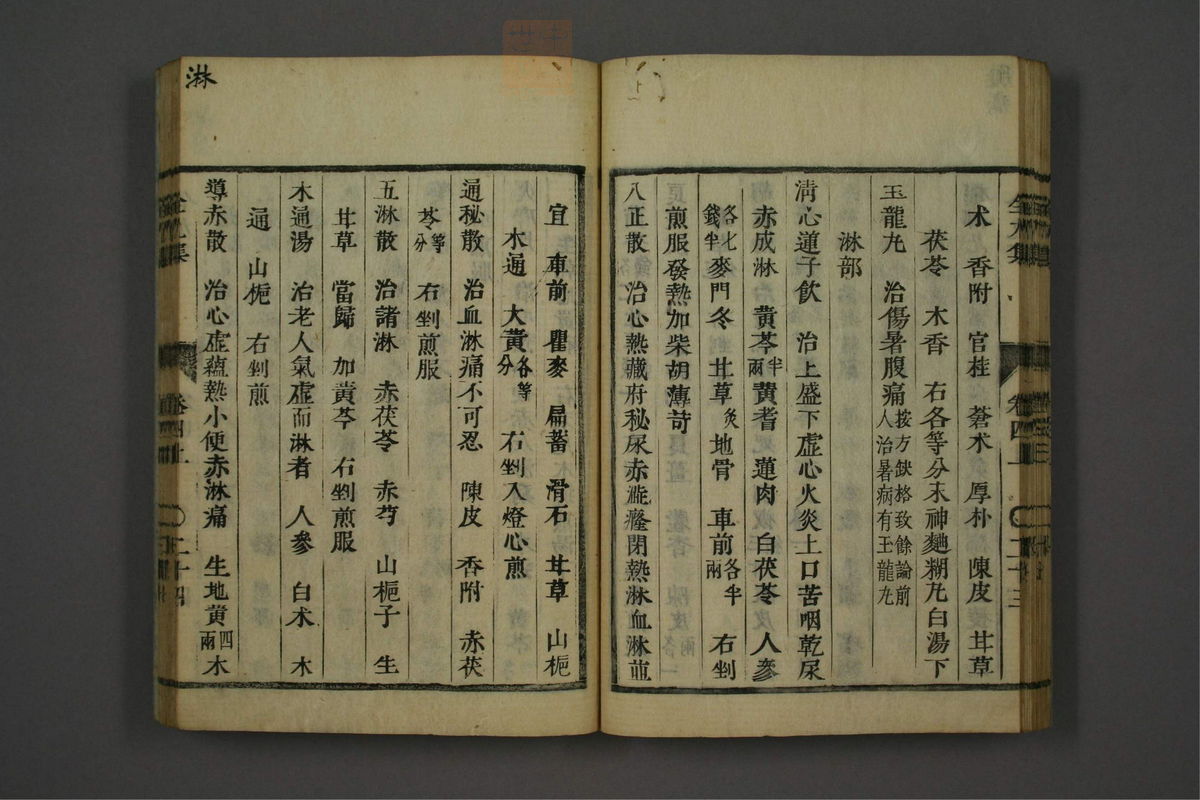 术　香附　官桂　蒼术　厚朴　陳皮　甘草
茯苓　木香　右各等分末神麯糊丸白湯下
玉龍丸　治傷暑腹痛按方缺格致餘論前人治暑病有玉龍丸
淋部
清心蓮子飲　治上盛下虚心火炎上口苦咽乾尿
赤成淋　黄芩半兩黄耆　蓮肉　白茯苓　人參
各七錢半麥門冬　甘草炙地骨　車前各半兩　右剉
煎服發熱加柴胡薄苛
八正散　治心熱藏府秘尿赤澁癃閉熱淋血淋並
宜　車前　瞿麥　扁蓄　滑石　甘草　山梔
木通　大黄各等分　右剉入燈心煎
通秘散　治血淋痛不可忍　陳皮　香附　赤茯
苓等分　右剉煎服
五淋散　治諸淋　赤茯苓　赤芍　山梔子　生
甘草　當歸　加黄芩　右剉煎服
木通湯　治老人氣虚而淋者　人參　白术　木
通　山梔　右剉煎
導赤散　治心虚蘊熱小便赤淋痛　生地黄四兩木
淋
卷四上
二十三
卷四上
二十四